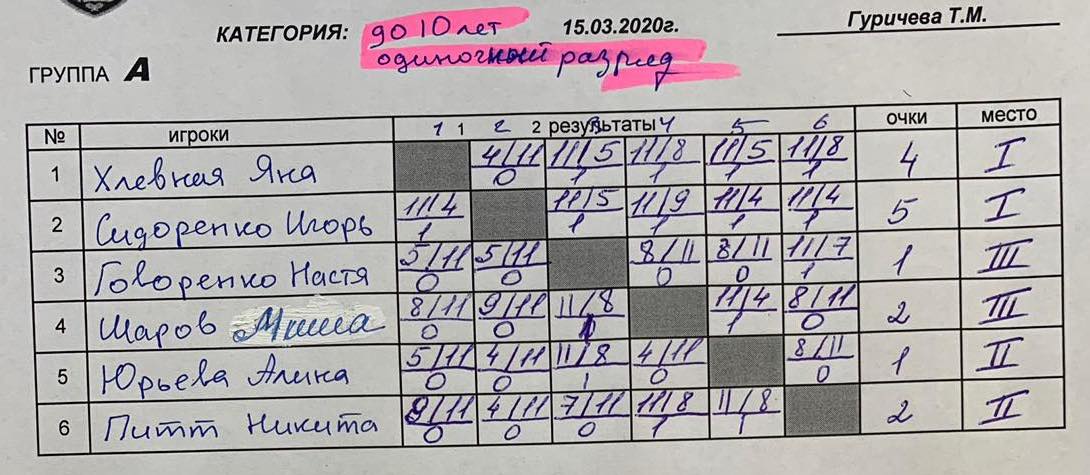 Гуричева Т.М.
КАТЕГОРИЯ: до 10 лет 15.03.2020г.
одиночный разряд
ГРУППА А
№ игроки 1 1 2 2 результаты 3 4 5 6 очки место
1 Хлевная Яна 4/11 11/5 11/8 11/5 11/8 4 I
0 1 1 1 1
2 Сидоренко Игорь 11/4 11/5 11/9 11/4 11/4 5 I
1 1 1 1 1
3 Говоренко Настя 5/11 5/11 8/11 8/11 11/7 1 III
0 0 0 0 1
4 Шаров Миша 8/11 9/11 11/8 11/4 8/11 2 III
0 0 1 1 0
5 Юрьева Алина 5/11 4/11 11/8 4/11 8/11 1 II
0 0 1 0 0
6 Питт Никита 9/11 4/11 7/11 11/8 11/8 2 II
0 0 0 1 1